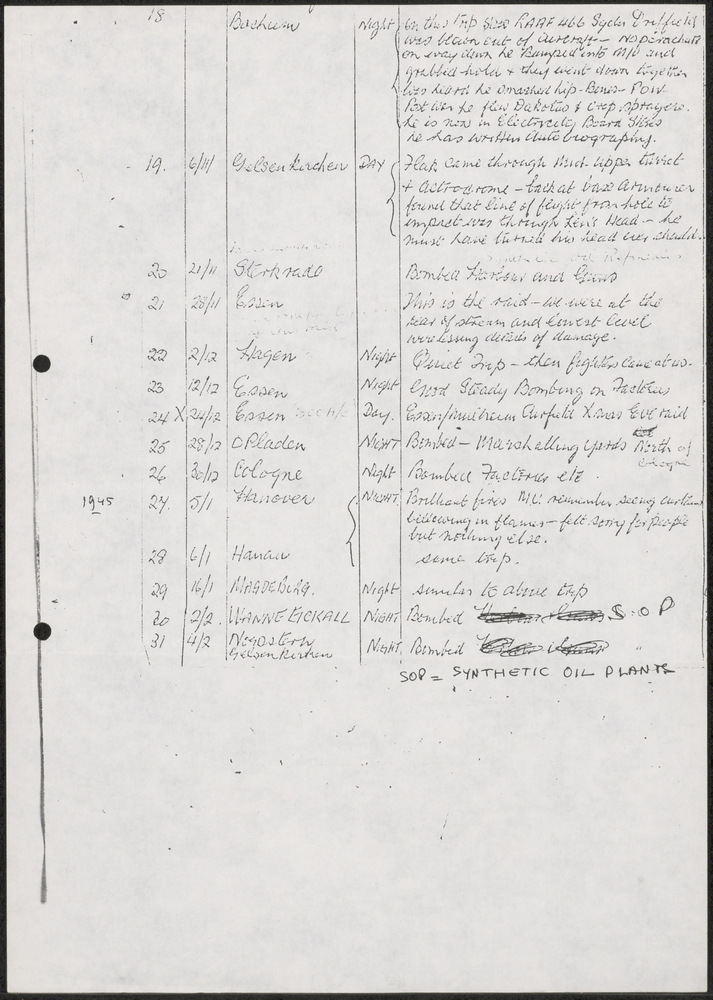 18 Bochum Night on this trip RAAF 466 Sqdn Driffield
was blown out of aircraft - No parachute
on way down he bumped into M/U and
grabbed hold & they went down together
he smashed hip - POW.
Post war he flew Dakotas & crop sprayers.
he is now in Electricity Board
he has written Autobiography.
19. 6/11 Gelsenkirchen DAY Flak came through Mid-upper turret
+ - back at base Armourer
found that line of flight from hole to
impact was through Len's Head - he
must have turned his head
20 21/11 Sterkrade Bombed Harbour and
21 28/11 Essen This is the raid - we were at the
rear of stream and lowest level
details of damage.
22 2/12 Hagen Night Quiet Trip - then fighters came at us.
23 12/12 Essen Night Good Steady Bombing on Factories
24 X 24/12 Essen Day. Essen/Mulheim Airfield Xmas Eve raid
25 28/12 OPladen NIGHT Bombed - Marshalling Yards North of
Cologne
26 30/12 Cologne Night Bombed Factories etc.
1945 27. 5/1 Hanover NIGHT. Brilliant fires M/U remember seeing curtains
billowing in flames - felt sorry for people
but nothing else.
28 6/1 Hanau same trip.
29 16/1 MAGDEBURG. Night similar to above trip
30 2/2. WANNE EICKALL NIGHT Bombed S.O P
31 4/2 Nordstern NIGHT. Bombed "
Gelsenkirchen
SOP = SYNTHETIC OIL PLANTS